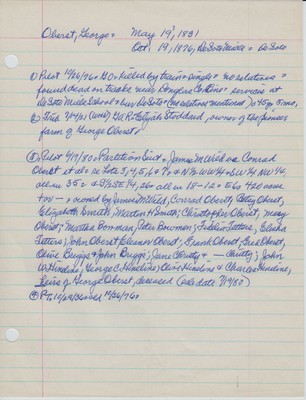 Oberst, George = May 19?, 1831
Oct. 19, 1876, DeSoto Mills = DeSoto
① Pilot 10/26/76 = GO = killed by train = single = no relatives =
found dead on tracks near Douglas = services at
DeSoto Mills School = bur DeSoto = (no relatives mentioned) = 45y 5mo,
② Trib 7/4/21 (WWS) Ga R Elijah Stoddard, owner of the pioneer
farm of George Oberst.
③ Pilot 9/19/80 = Partition Suit = James M Weld vs Conrad
Oberst et al = Lots 3, 4, 5, 6 & N½ NW¼ + SW¼ NW¼,
all in 35 = & S½ SE¼, 26 = all in 18-12 = 560 420 acres
for = owned by James M Weld, Conrad Oberst, Betsy Oberst,
Elizabeth Smith, Martin H Smith, Christopher Oberst, Mary
Oberst, Martha Bowman, Peter Bowman, Fidelia Tetters, Elisha
Tetters; John Oberst, Eleanor Oberst, Frank Oberst, Gus Oberst,
Olive Briggs & John Briggs; Jane Christy & — Christy; John
W. Hendins, George C. Hendins, Olive Hendins & Charles Hendins,
heirs of George Oberst, deceased (sale date 7/19/80)
④ P.T. 10/20/76